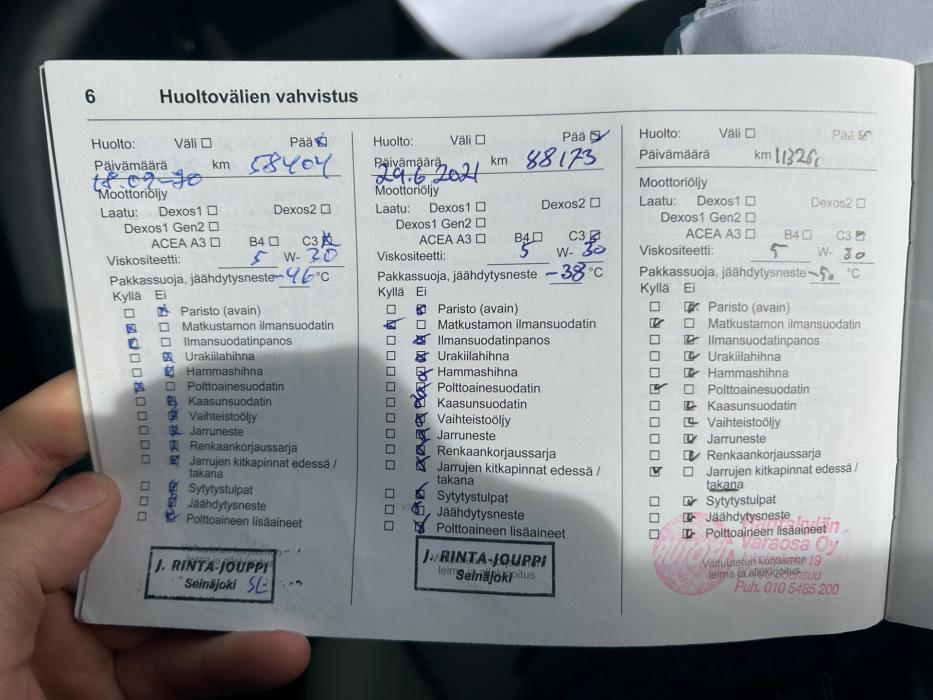 6 Huoltovälien vahvistus
Huolto: Väli Pää
Päivämäärä km 58404
18.09-20
Moottoriöljy
Laatu: Dexos1 Dexos2
Dexos1 Gen2
ACEA A3 B4 C3
Viskositeetti: 5 W- 30
Pakkassuoja, jäähdytysneste -46 °C
Kyllä Ei
Paristo (avain)
Matkustamon ilmansuodatin
Ilmansuodatinpanos
Urakiilahihna
Hammashihna
Polttoainesuodatin
Kaasunsuodatin
Vaihteistoöljy
Jarruneste
Renkaankorjaussarja
Jarrujen kitkapinnat edessä /
takana
Sytytystulpat
Jäähdytysneste
Polttoaineen lisäaineet
J. RINTA-JOUPPI
Seinäjoki
Huolto: Väli Pää
Päivämäärä km 88173
29.6.2021
Moottoriöljy
Laatu: Dexos1 Dexos2
Dexos1 Gen2
ACEA A3 B4 C3
Viskositeetti: 5 W- 30
Pakkassuoja, jäähdytysneste -38 °C
Kyllä Ei
Paristo (avain)
Matkustamon ilmansuodatin
Ilmansuodatinpanos
Urakiilahihna
Hammashihna
Polttoainesuodatin
Kaasunsuodatin
Vaihteistoöljy
Jarruneste
Renkaankorjaussarja
Jarrujen kitkapinnat edessä /
takana
Sytytystulpat
Jäähdytysneste
Polttoaineen lisäaineet
J. RINTA-JOUPPI
leima ja allekirjoitus
Seinäjoki
Huolto: Väli Pää
Päivämäärä km
Moottoriöljy
Laatu: Dexos1 Dexos2
Dexos1 Gen2
ACEA A3 B4 C3
Viskositeetti: 5 W- 30
Pakkassuoja, jäähdytysneste °C
Kyllä Ei
Paristo (avain)
Matkustamon ilmansuodatin
Ilmansuodatinpanos
Urakiilahihna
Hammashihna
Polttoainesuodatin
Kaasunsuodatin
Vaihteistoöljy
Jarruneste
Renkaankorjaussarja
Jarrujen kitkapinnat edessä /
takana
Sytytystulpat
Jäähdytysneste
Polttoaineen lisäaineet
Varaosa Oy
Valtuutetun korjaamon 19
leima ja allekirjoitus
Puh. 010 5485 200